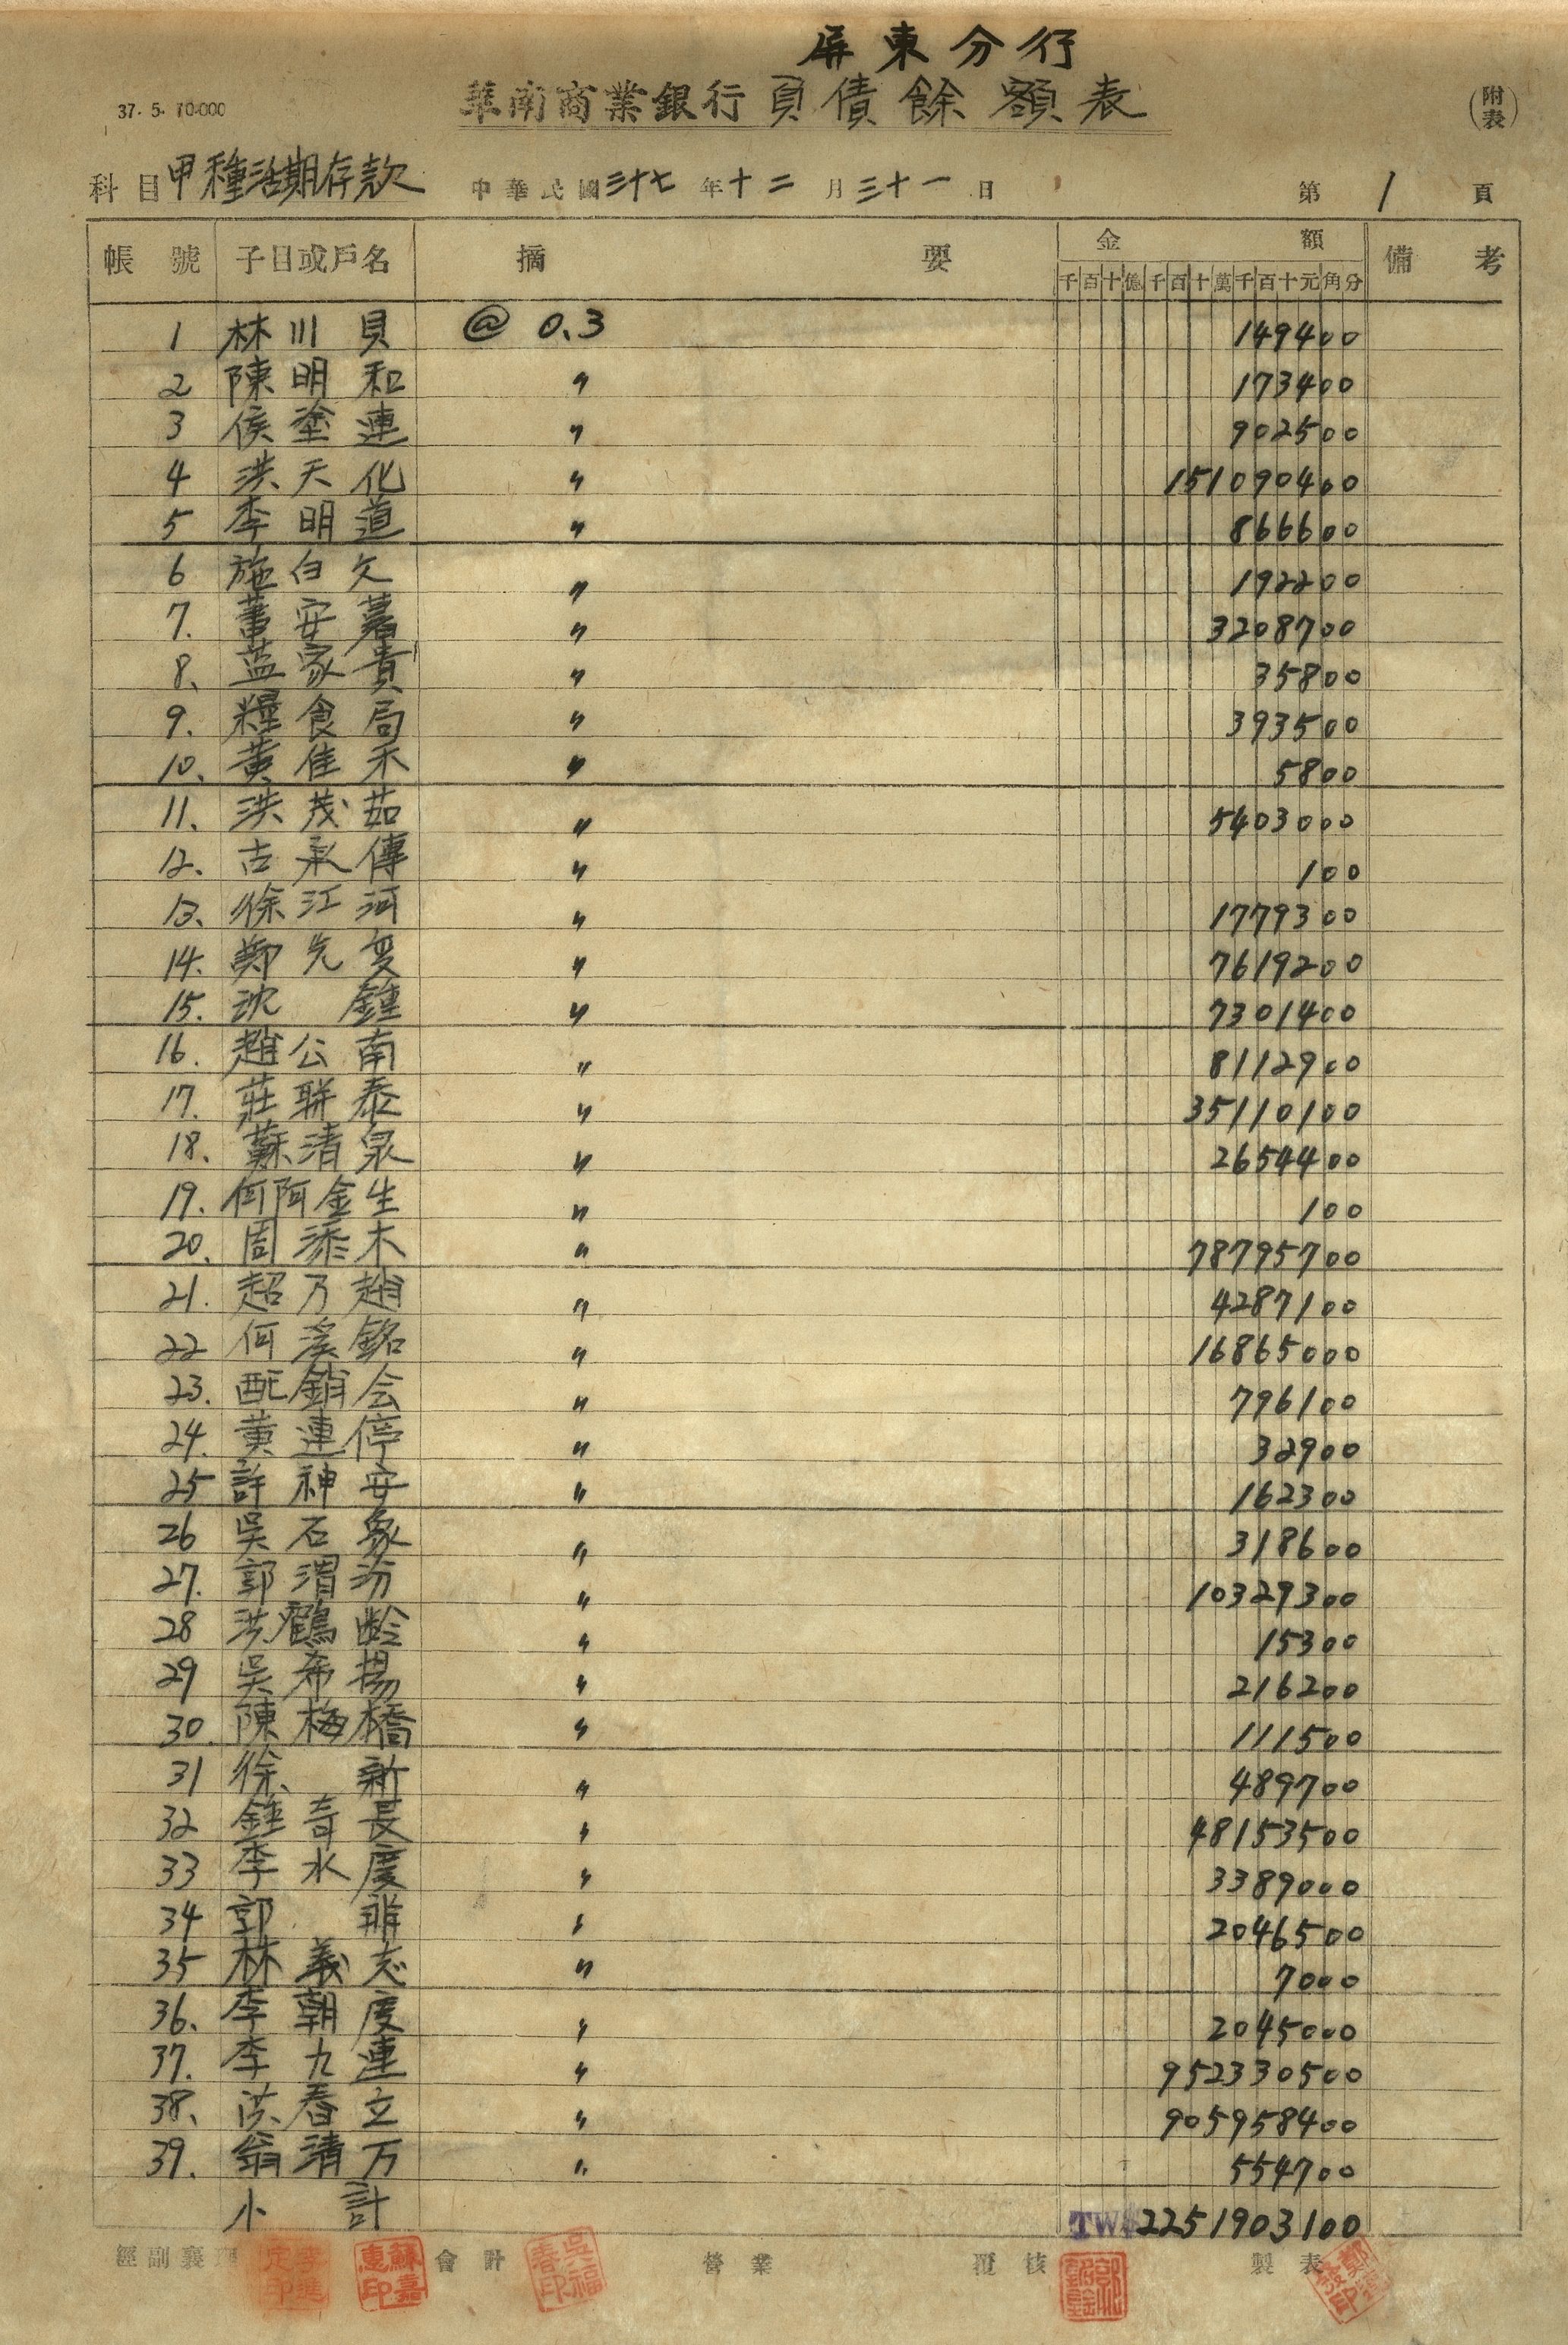 屏東分行
37.5.10.000 華南商業銀行負債餘額表 (附表)
科目甲種活期存款 中華民國三十七年十二月三十一日 第1頁
帳號 子目或戶名 摘要 金額 備考
千百十億千百十萬千百十元角分
1 林川貝 @ 0.3 149400
2 陳明和 〃 173400
3 侯塗連 〃 902500
4 洪天化 〃 151090400
5 李明道 〃 866600
6 施白欠 〃 192200
7. 董安荖 〃 3208700
8. 藍家貴 〃 35800
9. 糧食局 〃 393500
10. 黃佳禾 〃 5800
11. 洪茂茹 〃 5403000
12. 古承傳 〃 100
13. 徐江河 〃 1779300
14. 鄭先 〃 7619200
15. 沈鍾 〃 7301400
16. 趙公南 〃 8112900
17. 莊聯泰 〃 35110100
18. 蘇清泉 〃 2654400
19. 何阿金生 〃 100
20. 周添木 〃 78795700
21. 超乃趙 〃 4287100
22 何溪銘 〃 16865000
23. 配銷会 〃 796100
24. 黃連停 〃 32900
25 許神安 〃 162300
26 吳石象 〃 318600
27. 郭渭汾 〃 10329300
28 洪鶴齡 〃 15300
29 吳希揚 〃 216200
30. 陳梅橋 〃 111500
31 徐新 〃 489700
32 鍾奇長 〃 48153500
33 李水慶 〃 3389000
34 郭非 〃 2046500
35 林義志 〃 7000
36. 李朝度 〃 2045000
37. 李九連 〃 952330500
38. 洪春立 〃 905958400
39. 翁清万 〃 554700
小計 TW$2251903100
經副襄理 蘇嘉惠印 會計 吳福春印 營業 覆核 製表